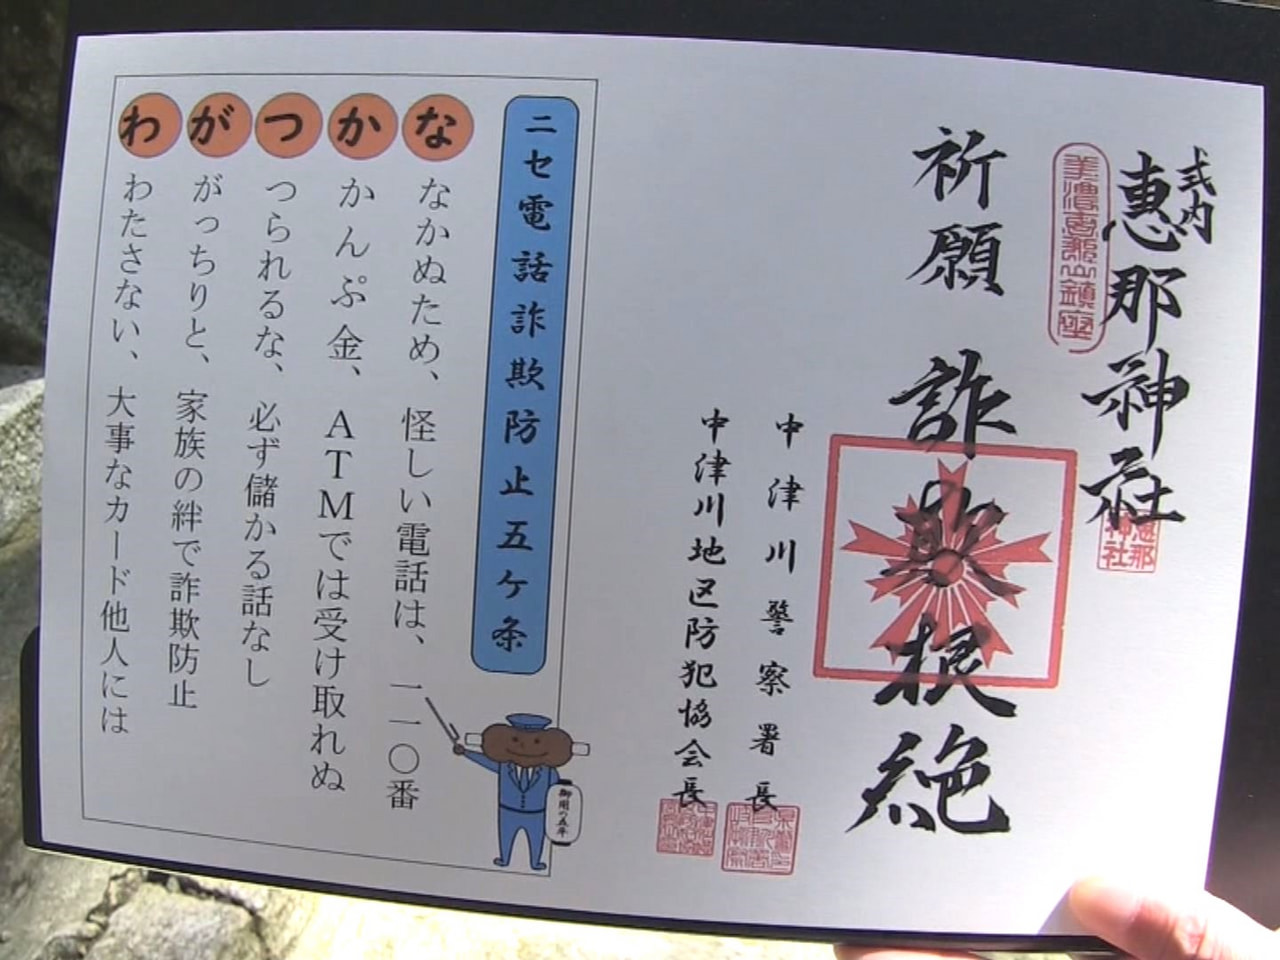 式内
恵那神社
美濃恵那山鎮座
恵那
神社
祈願 詐欺根絶
中津川警察署長
中津川地区防犯協会長
ニセ電話詐欺防止五ケ条
なかぬため、怪しい電話は、一一〇番
かんぷ金、ATMでは受け取れぬ
つられるな、必ず儲かる話なし
がっちりと、家族の絆で詐欺防止
わたさない、大事なカード他人には
な
か
つ
が
わ